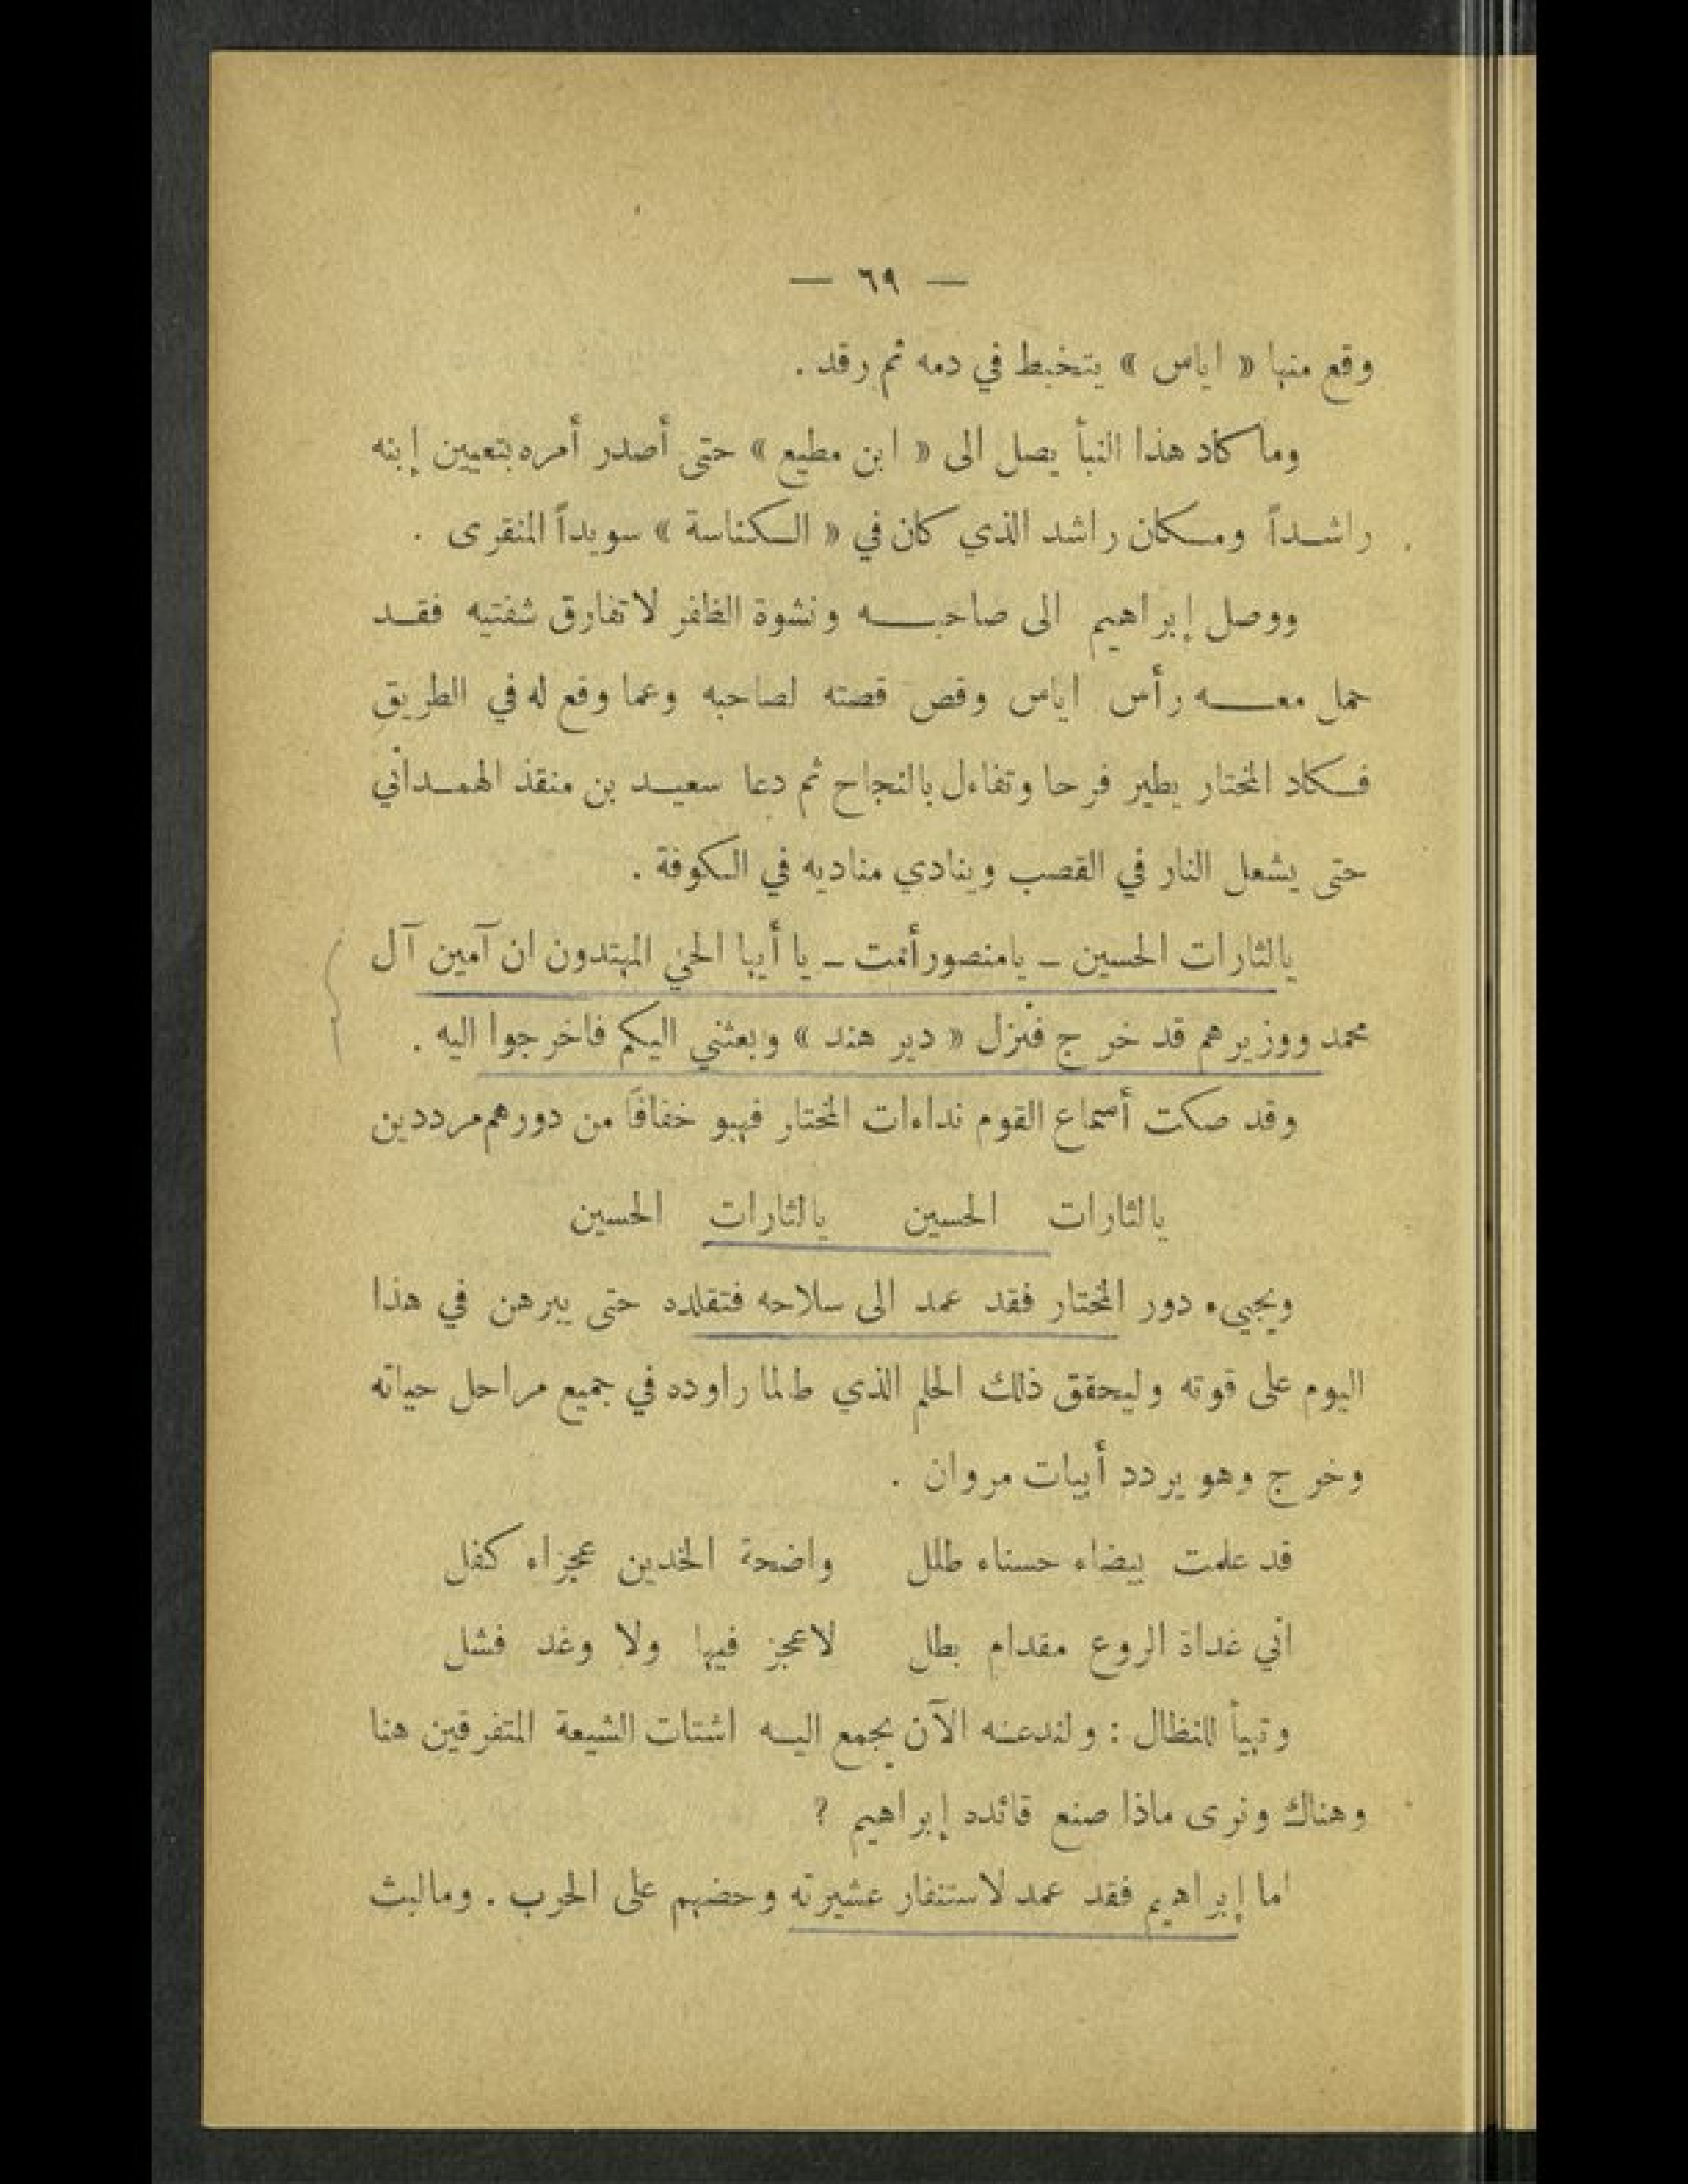 — ٦٩ —
وقع منها « اياس » يتخبط في دمه ثم رقد .
وما كاد هذا النبأ يصل الى « ابن مطيع » حتى أصدر أمره بتعيين إبنه
راشداً ومكان راشد الذي كان في « الكناسة » سويداً المنقرى .
ووصل إبراهيم الى صاحبه ونشوة الظافر لا تفارق شفتيه فقد
حمل معه رأس اياس وقص قصته لصاحبه وعما وقع له في الطريق
فكاد المختار يطير فرحا وتفاءل بالنجاح ثم دعا سعيد بن منقذ الهمداني
حتى يشعل النار في القصب وينادي مناديه في الكوفة .
يالثارات الحسين – يامنصور أمت – يا أيها الحي المهتدون ان آمين آل
محمد ووزيرهم قد خرج فنزل « دير هند » وبعثني اليكم فاخرجوا اليه .
وقد صكت أسماع القوم نداءات المختار فهبو خفافاً من دورهم مرددين
يالثارات الحسين يالثارات الحسين
ويجيء دور المختار فقد عمد الى سلاحه فتقلده حتى يبرهن في هذا
اليوم على قوته وليحقق ذلك الحلم الذي طالما راوده في جميع مراحل حياته
وخرج وهو يردد أبيات مروان .
قد علمت بيضاء حسناء طلل واضحة الخدين عجزاء كفل
اني غداة الروع مقدام بطل لا عجز فيها ولا وغد فشل
وتهيأ للنظال : ولندعه الآن يجمع اليه اشتات الشيعة المتفرقين هنا
وهناك ونرى ماذا صنع قائده إبراهيم ؟
اما إبراهيم فقد عمد لاستنفار عشيرته وحضهم على الحرب . ومالبث